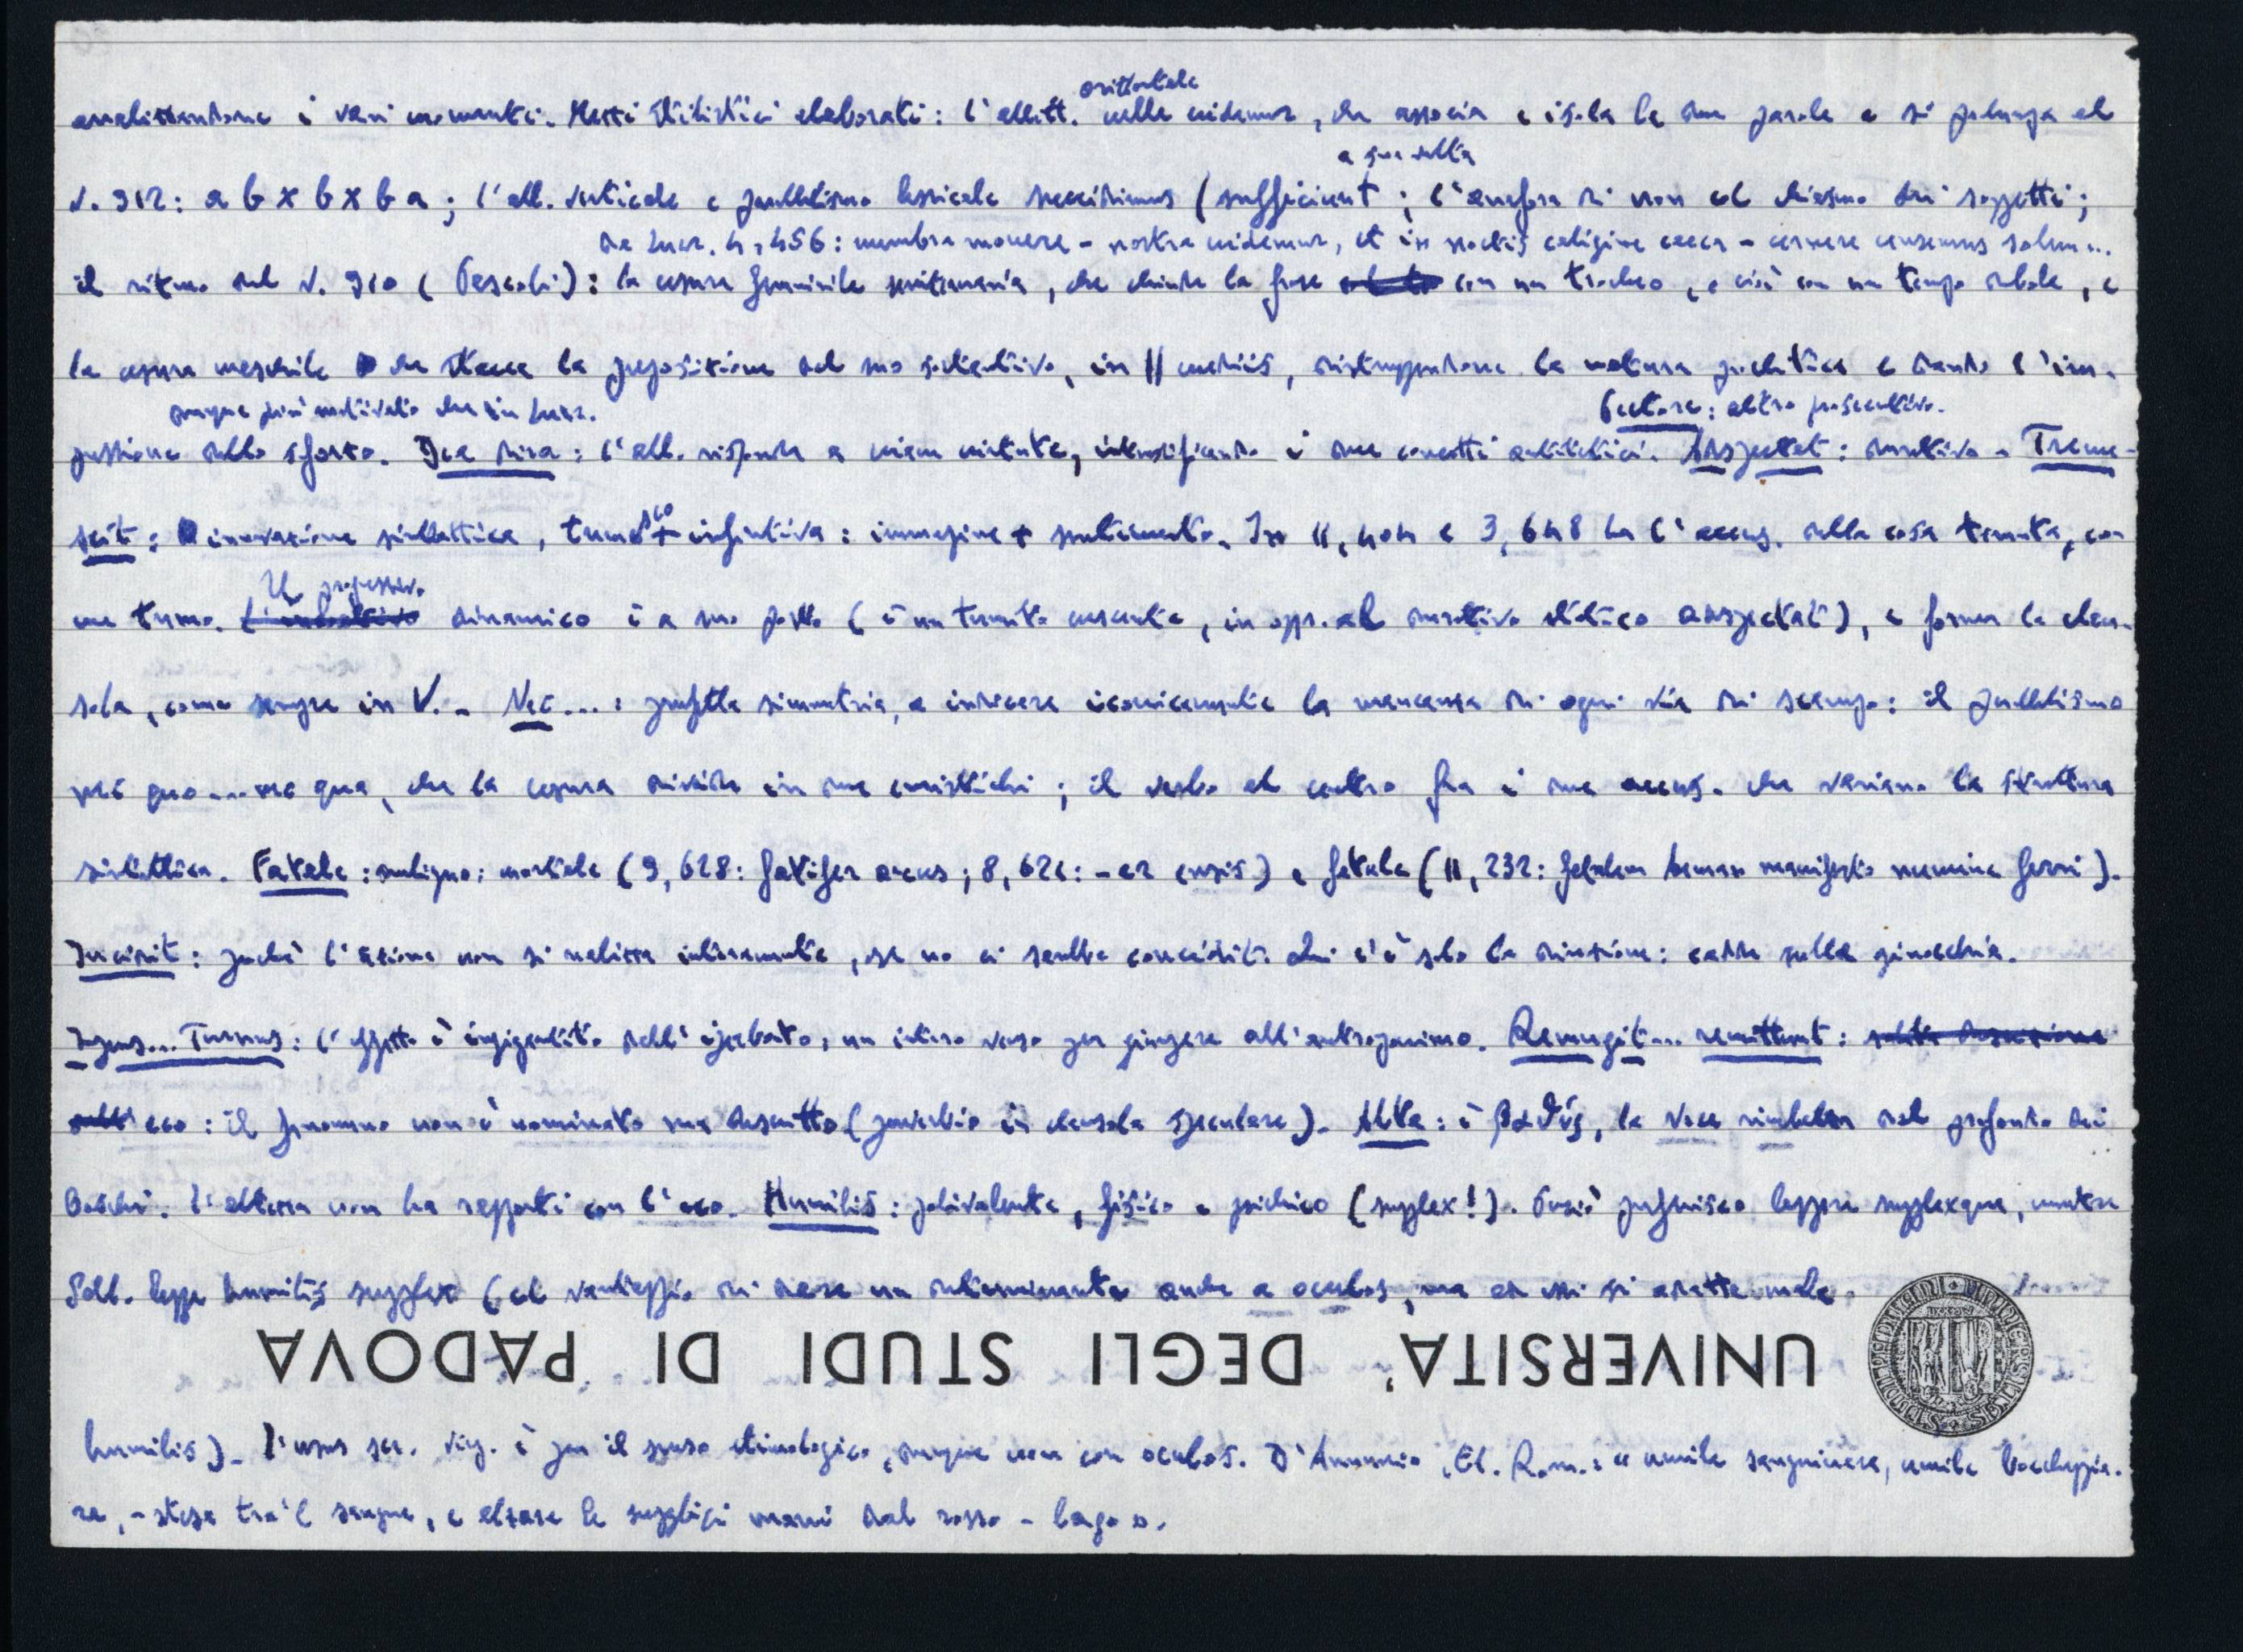 analizzandone i vari momenti. Mezzi stilistici elaborati: l'allitt. orizzontale velle videmur, che associa e isola le due parole e si prolunga al
v. 912: a b x b x b a; l'all. verticale e parallelismo lessicale succidimus (sufficiunt; l'anafora di non col chiasmo dei soggetti;
da Lucr. 4, 456: membra movere – nostra videmur, et in noctis caligine caeca – cernere censemus solem...
il ritmo del v. 910 (Pascoli): la cesura femminile semiternaria, che chiude la frase con un trocheo, e cioè con un tempo debole, e
la cesura maschile che stacca la preposizione dal suo sostantivo, in || mediis, distruggendone la natura proclitica e dando l'im-
dunque più motivato che in Lucr. Pectore: altro prosecutivo.
pressione dello sforzo. Dea dira: l'all. risponde a viam virtute, intensificando i due concetti antitetici. Aspectat: durativo – Treme-
scit: innovazione sintattica, tremesco + infinitiva: immagine + sentimento. In 11, 404 e 3, 648 ha l'accus. della cosa temuta, co-
me tremo. Il progressivo dinamico è a suo posto (è un tremito crescente, in opp. al durativo statico aspectat), e forma la clau-
sola, come sempre in V. – Nec...: perfetta simmetria, a indicare iconicamente la mancanza di ogni via di scampo: il parallelismo
nec quo... nec qua, che la cesura divide in due emistichi; il verbo al centro fra i due accus. che variano la struttura
sintattica. Fatale: ambiguo: mortale (9, 628: fatifer arcus; 8, 621: -er ensis) e fatale (11, 232: fatalem Aenean manifesto numine ferri).
Incidit: perché l'azione non si realizza interamente, se no ci sarebbe concidit. Qui c'è solo la direzione: cadde sulle ginocchia.
Ingens... Turnus: l'effetto è ingigantito dall'iperbato, un intero verso per giungere all'antroponimo. Remugit... remittunt:
eco: il fenomeno non è nominato ma descritto (preverbio in clausola speculare). Alta: è βαθύς, la voce rimbalza dal profondo dei
boschi. L'altezza non ha rapporti con l'eco. Humilis: polivalente, fisico e psichico (supplex!). Perciò preferisco leggere supplexque, mentre
Sabb. legge humilis supplex (col vantaggio di dare un determinante anche a oculos, ma ad essi si adatta male
UNIVERSITA' DEGLI STUDI DI PADOVA
humilis). L'usus scr. virg. è per il senso etimologico, dunque non con oculos. D'Annunzio, El. Rom.: «umile sanguinare, umile boccheggia-
re, – stesa tra 'l sangue, e alzare le supplici mani dal rosso – lago».